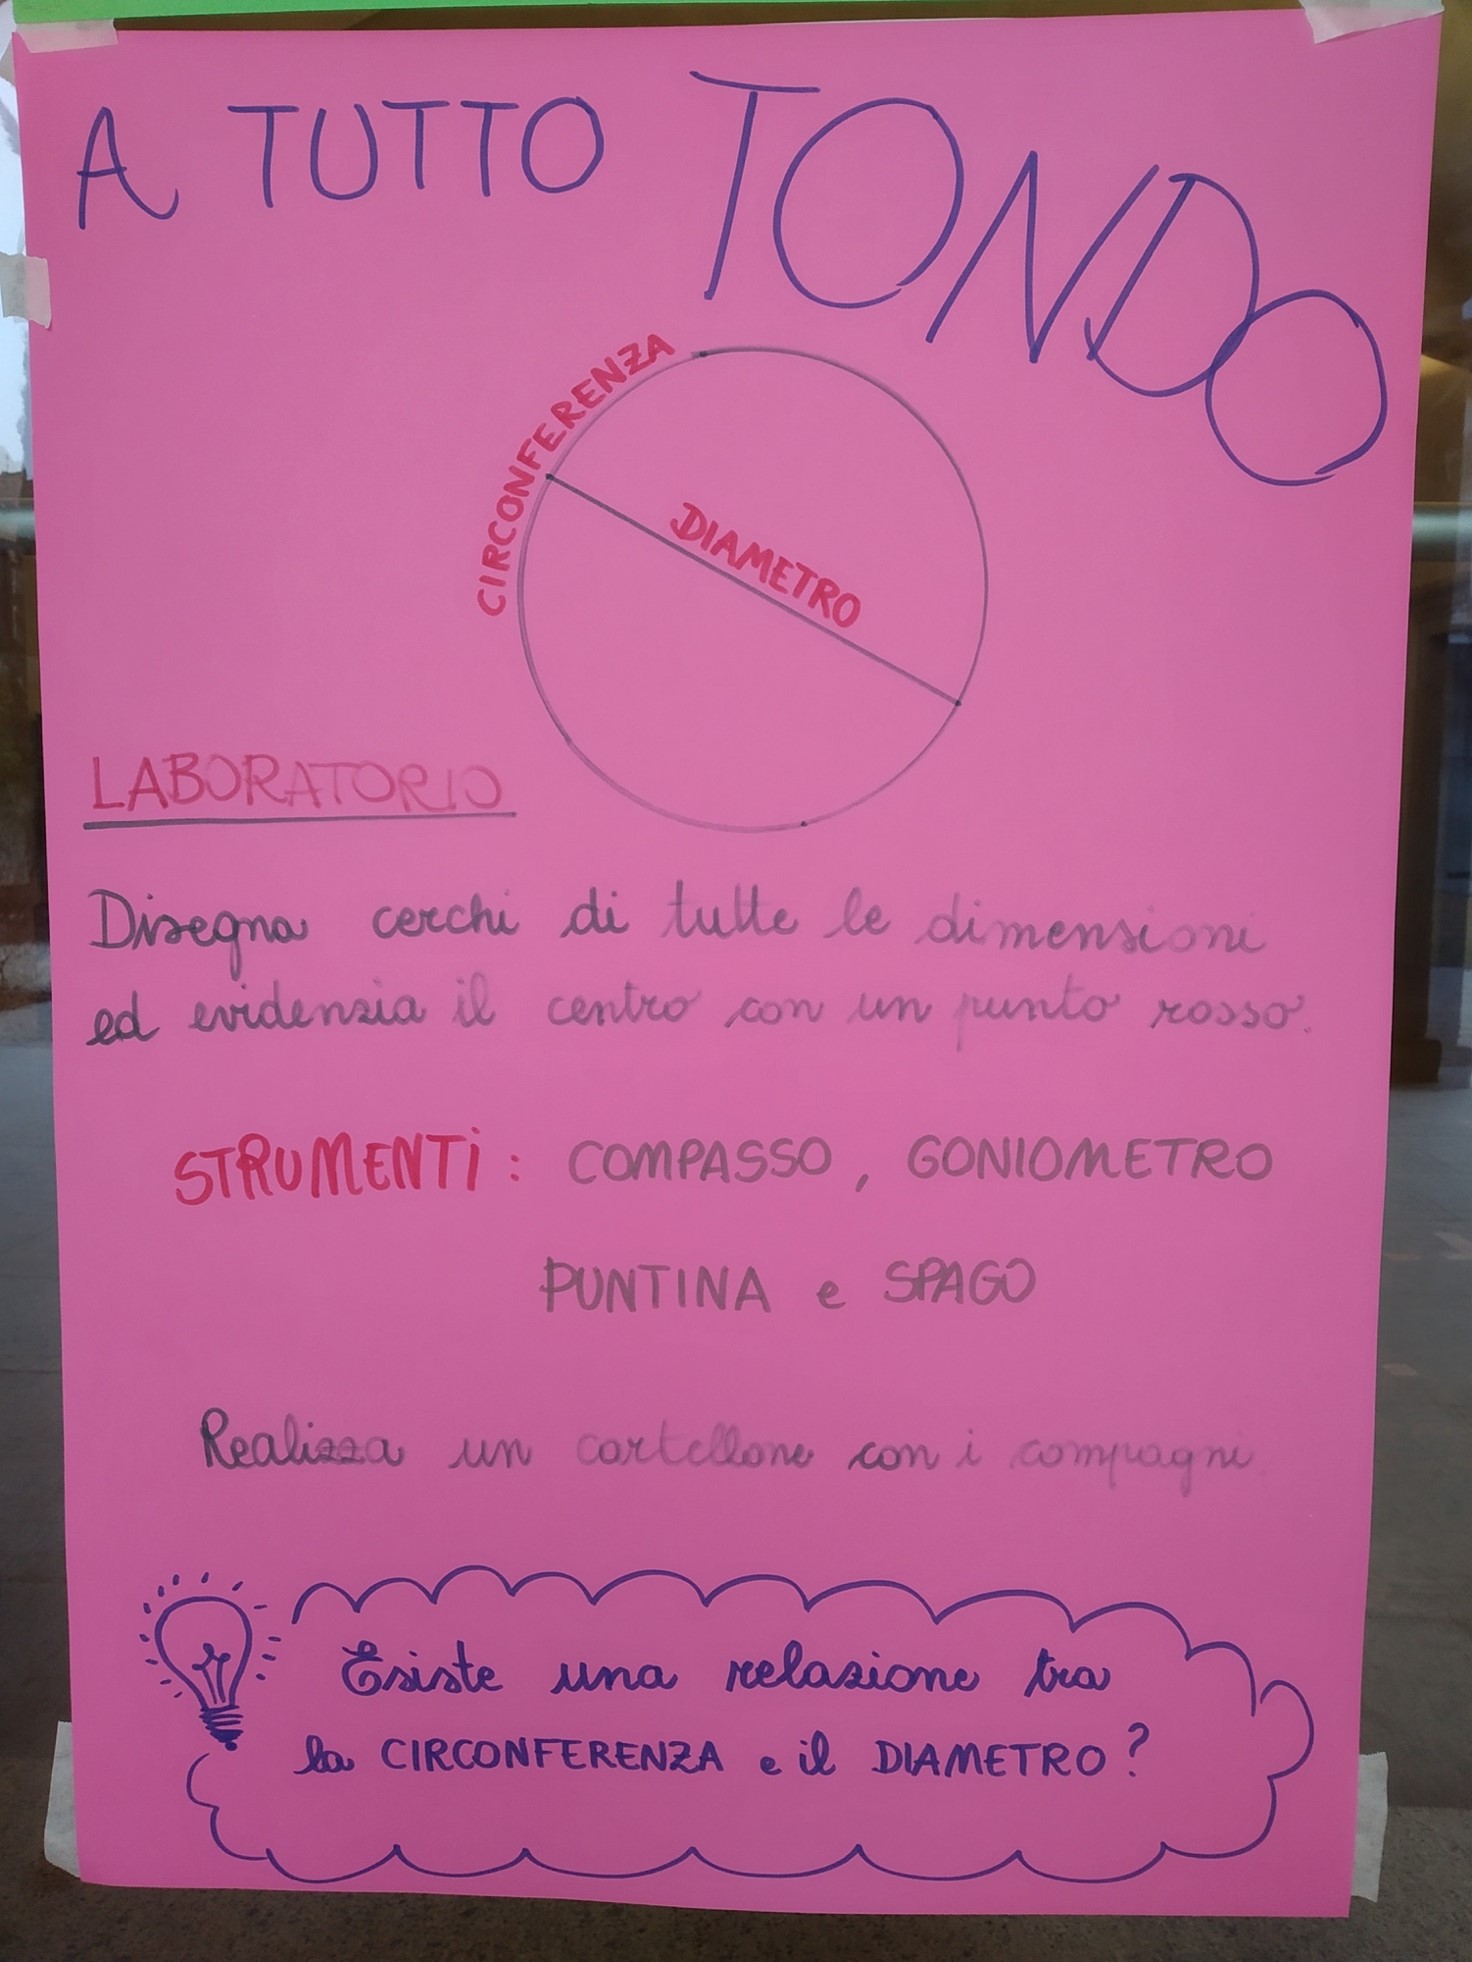 A TUTTO TONDO
CIRCONFERENZA
DIAMETRO
LABORATORIO
Disegna cerchi di tutte le dimensioni
ed evidenzia il centro con un punto rosso.
STRUMENTI: COMPASSO, GONIOMETRO
PUNTINA e SPAGO
Realizza un cartellone con i compagni
Esiste una relazione tra
la CIRCONFERENZA e il DIAMETRO?